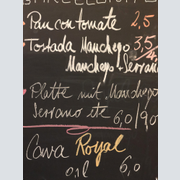 Pan con tomate 2,5
Tostada Manchego 3,5
Manchego + Serrano 4,-
Platte mit Manchego
Serrano etc 6,0/90
Cava Royal
0,1l 6,0